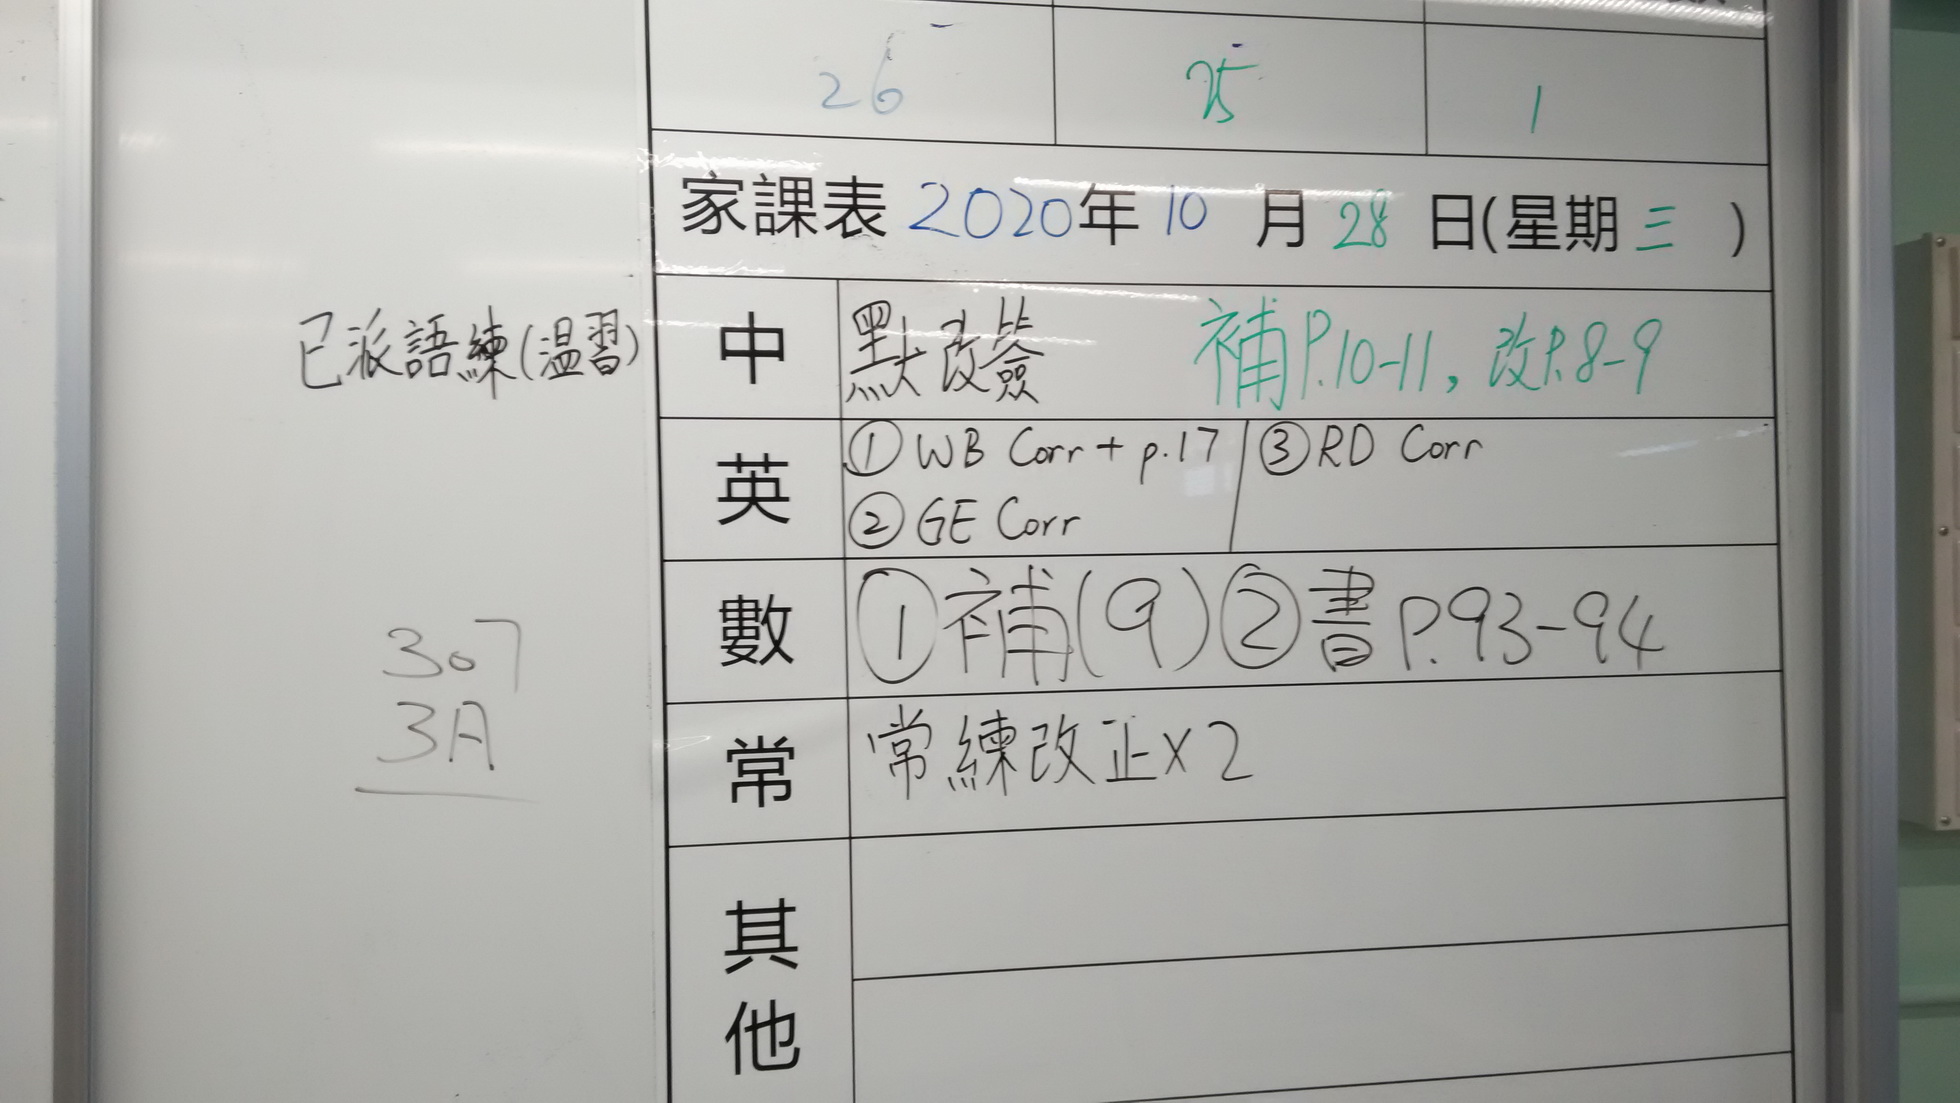 26 25 1
家課表 2020年 10 月 28 日(星期 三 )
已派語練(温習)
中 默改簽 補P.10-11, 改P.8-9
英 ① WB Corr + p.17 ③ RD Corr
② GE Corr
數 ①補(9) ②書 P.93-94
307
3A
常 常練改正x2
其
他